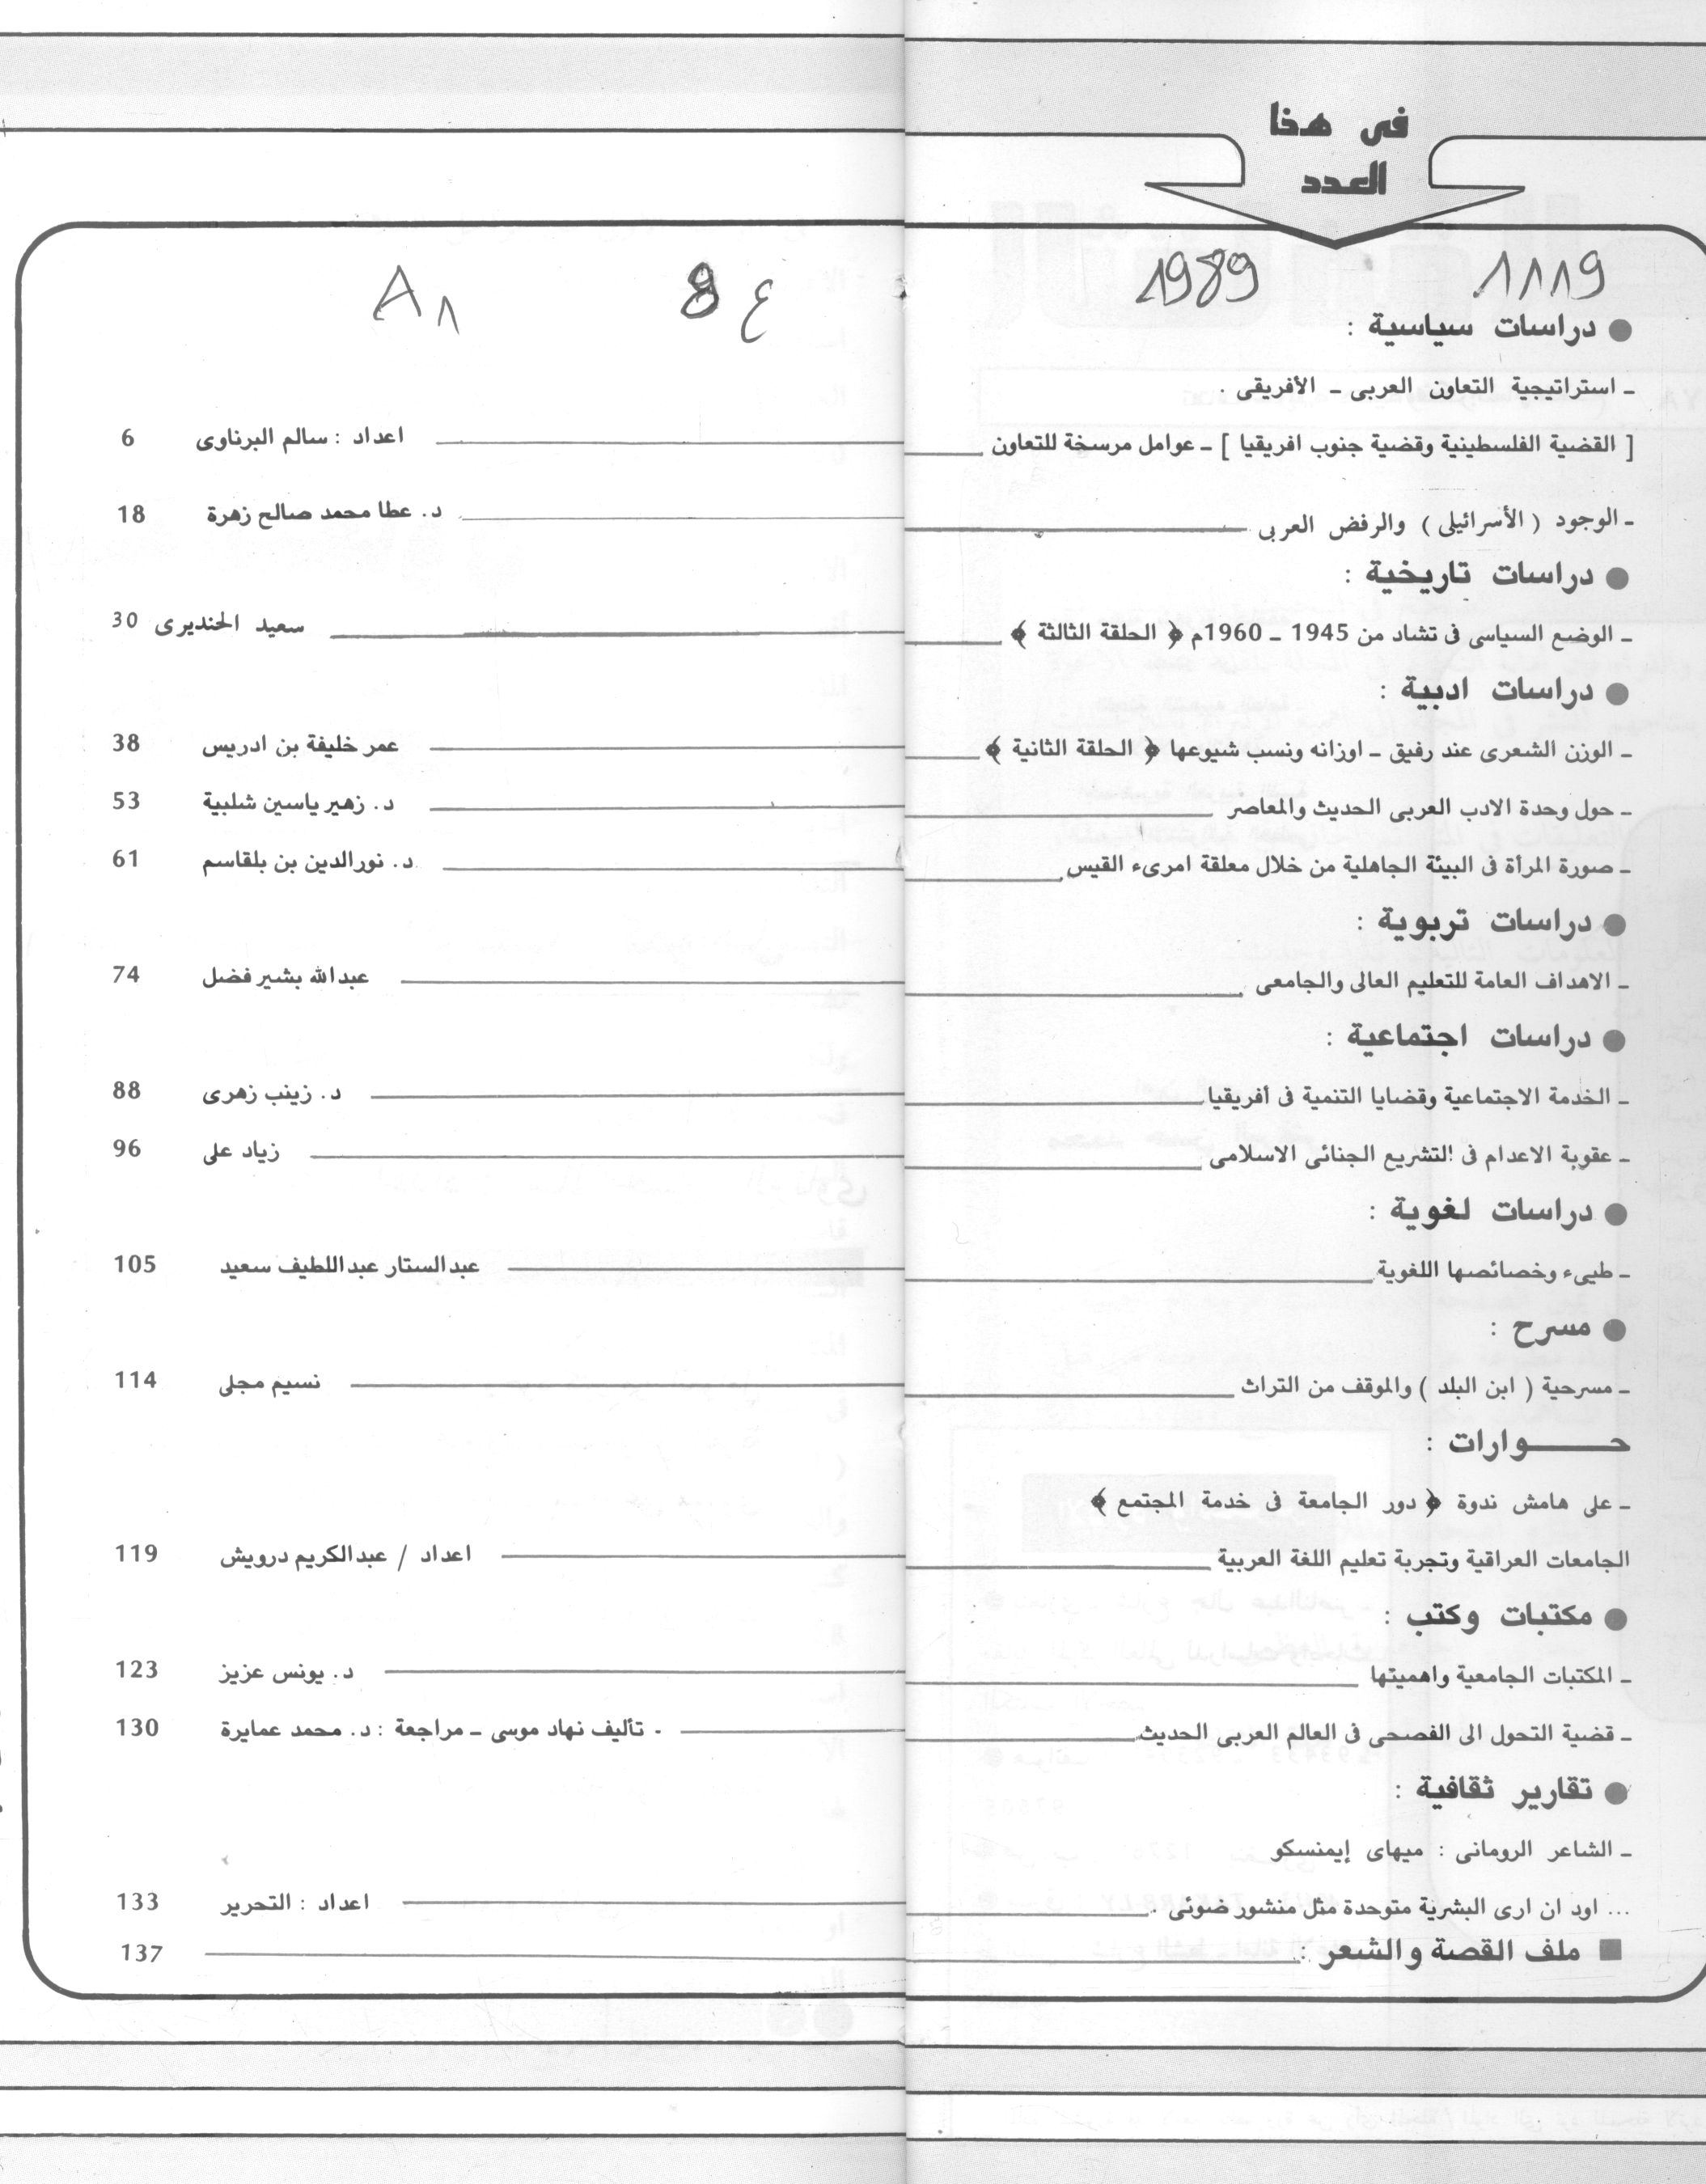 فى هذا
العدد
1989
8 ع
● دراسات سياسية :
ـ استراتيجية التعاون العربى ـ الأفريقى .
[ القضية الفلسطينية وقضية جنوب افريقيا ] ـ عوامل مرسخة للتعاون اعداد : سالم البرناوى 6
ـ الوجود ( الأسرائيلى ) والرفض العربى د. عطا محمد صالح زهرة 18
● دراسات تاريخية :
ـ الوضع السياسى فى تشاد من 1945 ـ 1960م ﴿ الحلقة الثالثة ﴾ سعيد الحنديرى 30
● دراسات ادبية :
ـ الوزن الشعرى عند رفيق ـ اوزانه ونسب شيوعها ﴿ الحلقة الثانية ﴾ عمر خليفة بن ادريس 38
ـ حول وحدة الادب العربى الحديث والمعاصر د. زهير ياسين شلبية 53
ـ صورة المرأة فى البيئة الجاهلية من خلال معلقة امرىء القيس د. نورالدين بن بلقاسم 61
● دراسات تربوية :
ـ الاهداف العامة للتعليم العالى والجامعى عبدالله بشير فضل 74
● دراسات اجتماعية :
ـ الخدمة الاجتماعية وقضايا التنمية فى أفريقيا د. زينب زهرى 88
ـ عقوبة الاعدام فى التشريع الجنائى الاسلامى زياد على 96
● دراسات لغوية :
ـ طيىء وخصائصها اللغوية عبدالستار عبداللطيف سعيد 105
● مسرح :
ـ مسرحية ( ابن البلد ) والموقف من التراث نسيم مجلى 114
حـــوارات :
ـ على هامش ندوة ﴿ دور الجامعة فى خدمة المجتمع ﴾
الجامعات العراقية وتجربة تعليم اللغة العربية اعداد / عبدالكريم درويش 119
● مكتبات وكتب :
ـ المكتبات الجامعية واهميتها د. يونس عزيز 123
ـ قضية التحول الى الفصحى فى العالم العربى الحديث . تأليف نهاد موسى ـ مراجعة : د. محمد عمايرة 130
● تقارير ثقافية :
ـ الشاعر الرومانى : ميهاى إيمنسكو
... اود ان ارى البشرية متوحدة مثل منشور ضوئى . اعداد : التحرير 133
■ ملف القصة والشعر : 137